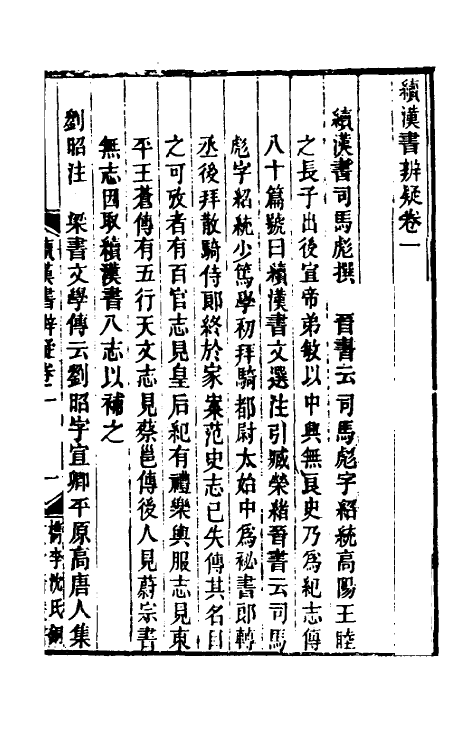 續漢書辨疑卷一
續漢書司馬彪撰　晉書云司馬彪字紹統高陽王睦
之長子出後宣帝弟敏以中興無良史乃爲紀志傳
八十篇號曰續漢書文選注引臧榮緒晉書云司馬
彪字紹統少篤學初拜騎都尉太始中爲祕書郎轉
丞後拜散騎侍郎終於家案范史志已失傳其名目
之可攷者有百官志見皇后紀有禮樂輿服志見東
平王蒼傳有五行天文志見蔡邕傳後人見蔚宗書
無志因取續漢書八志以補之
劉昭注　梁書文學傳云劉昭字宣卿平原高唐人集
續漢書辨疑卷一　一　檇李沈氏銅